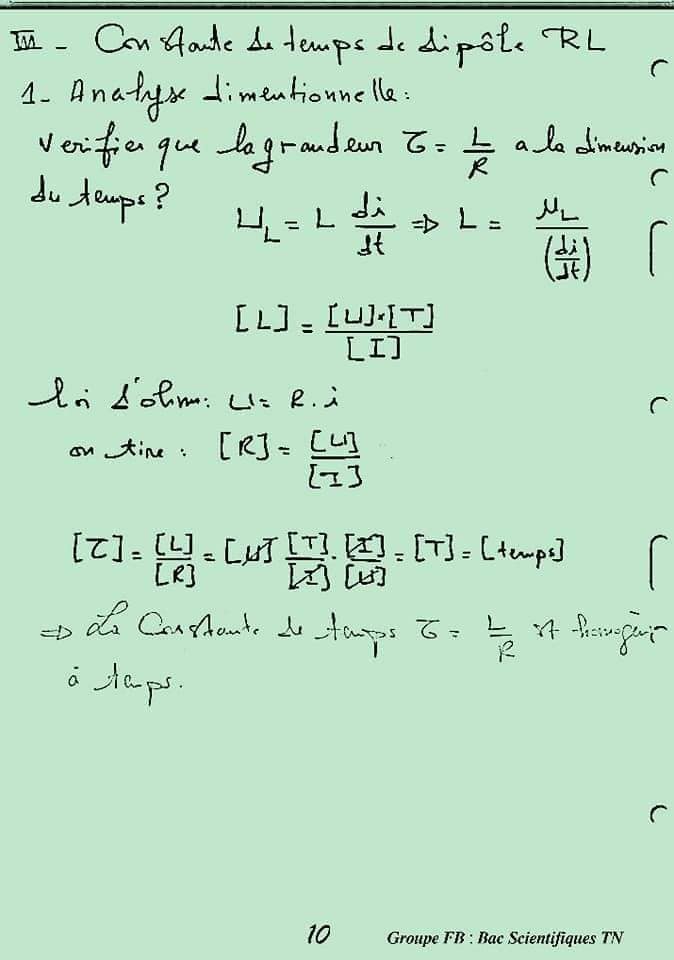 III - Constante de temps de dipôle RL
1- Analyse dimentionnelle:
Verifier que la grandeur τ = L/R a la dimension
du temps?
U_L = L di/dt ⇒ L = u_L/(di/dt)
[L] = [U]·[T]/[I]
loi d'ohm: U = R.i
on tire : [R] = [U]/[I]
[τ] = [L]/[R] = [U] [T]/[I] . [I]/[U] = [T] = [temps]
⇒ La Constante de temps τ = L/R est homogène
à temps.
10 Groupe FB : Bac Scientifiques TN